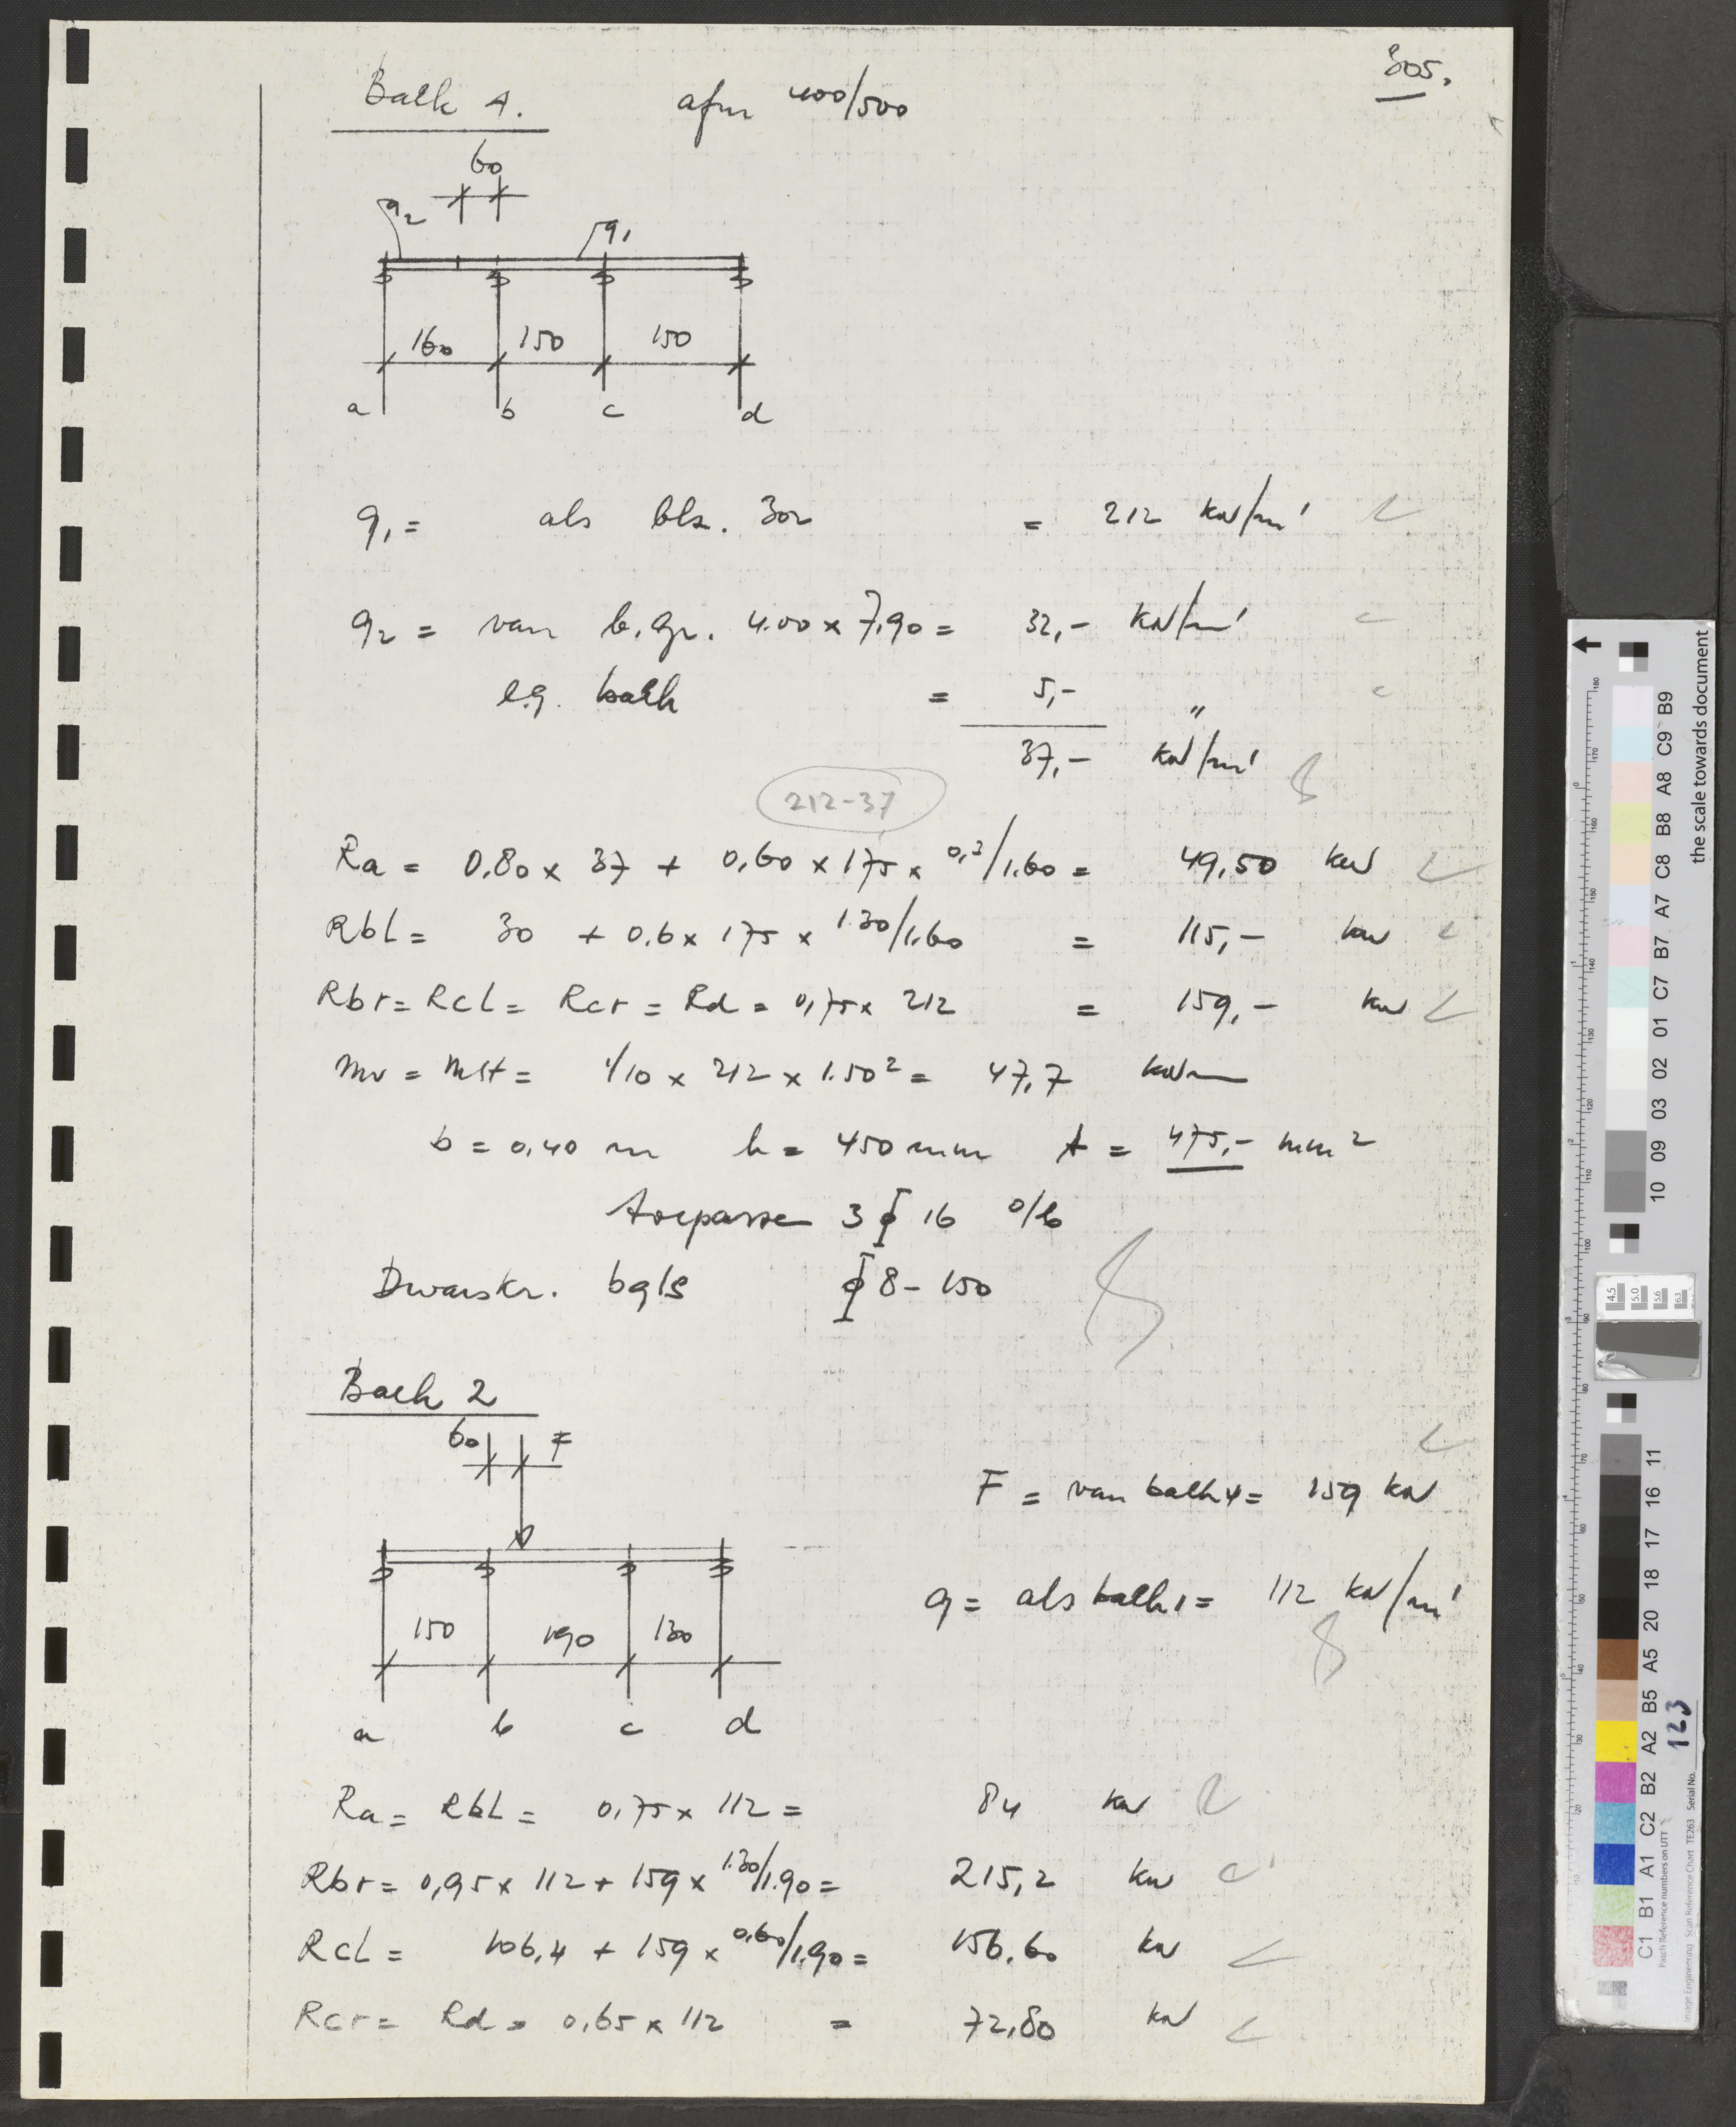 305.
Balk 4. afm 400/500
60
q2
q1
160 150 150
a b c d
q1 = als blz. 302 = 212 kN/m'
q2 = van b.gr. 4.00 x 7,90 = 32,- kN/m'
e.g. balk = 5,- "
37,- kN/m'
212-37
Ra = 0.80 x 37 + 0,60 x 175 x 0,3/1.60 = 49,50 kN
Rbl = 30 + 0.6 x 175 x 1.30/1.60 = 115,- kN
Rbr = Rcl = Rcr = Rd = 0,75 x 212 = 159,- kN
Mv = Mst = 1/10 x 212 x 1.50² = 47,7 kNm
b = 0,40 m h = 450 mm A = 475,- mm²
toepassen 3 ϕ 16 o/b
Dwarskr. bgls ϕ 8 - 150
Balk 2
60 F
F = van balk 4 = 159 kN
q = als balk 1 = 112 kN/m'
150 190 130
a b c d
Ra = Rbl = 0,75 x 112 = 84 kN
Rbr = 0,95 x 112 + 159 x 1.30/1.90 = 215,2 kN
Rcl = 106,4 + 159 x 0,60/1.90 = 156.60 kN
Rcr = Rd = 0,65 x 112 = 72,80 kN
the scale towards document
C1 B1 A1 C2 B2 A2 B5 A5 20 18 17 16 11
10 09 03 02 01 C7 B7 A7 C8 B8 A8 C9 B9
4.5
5.0
5.6
6.3
Image Engineering Scan Reference Chart TE263 Serial No. 123
Patch Reference numbers on UTT